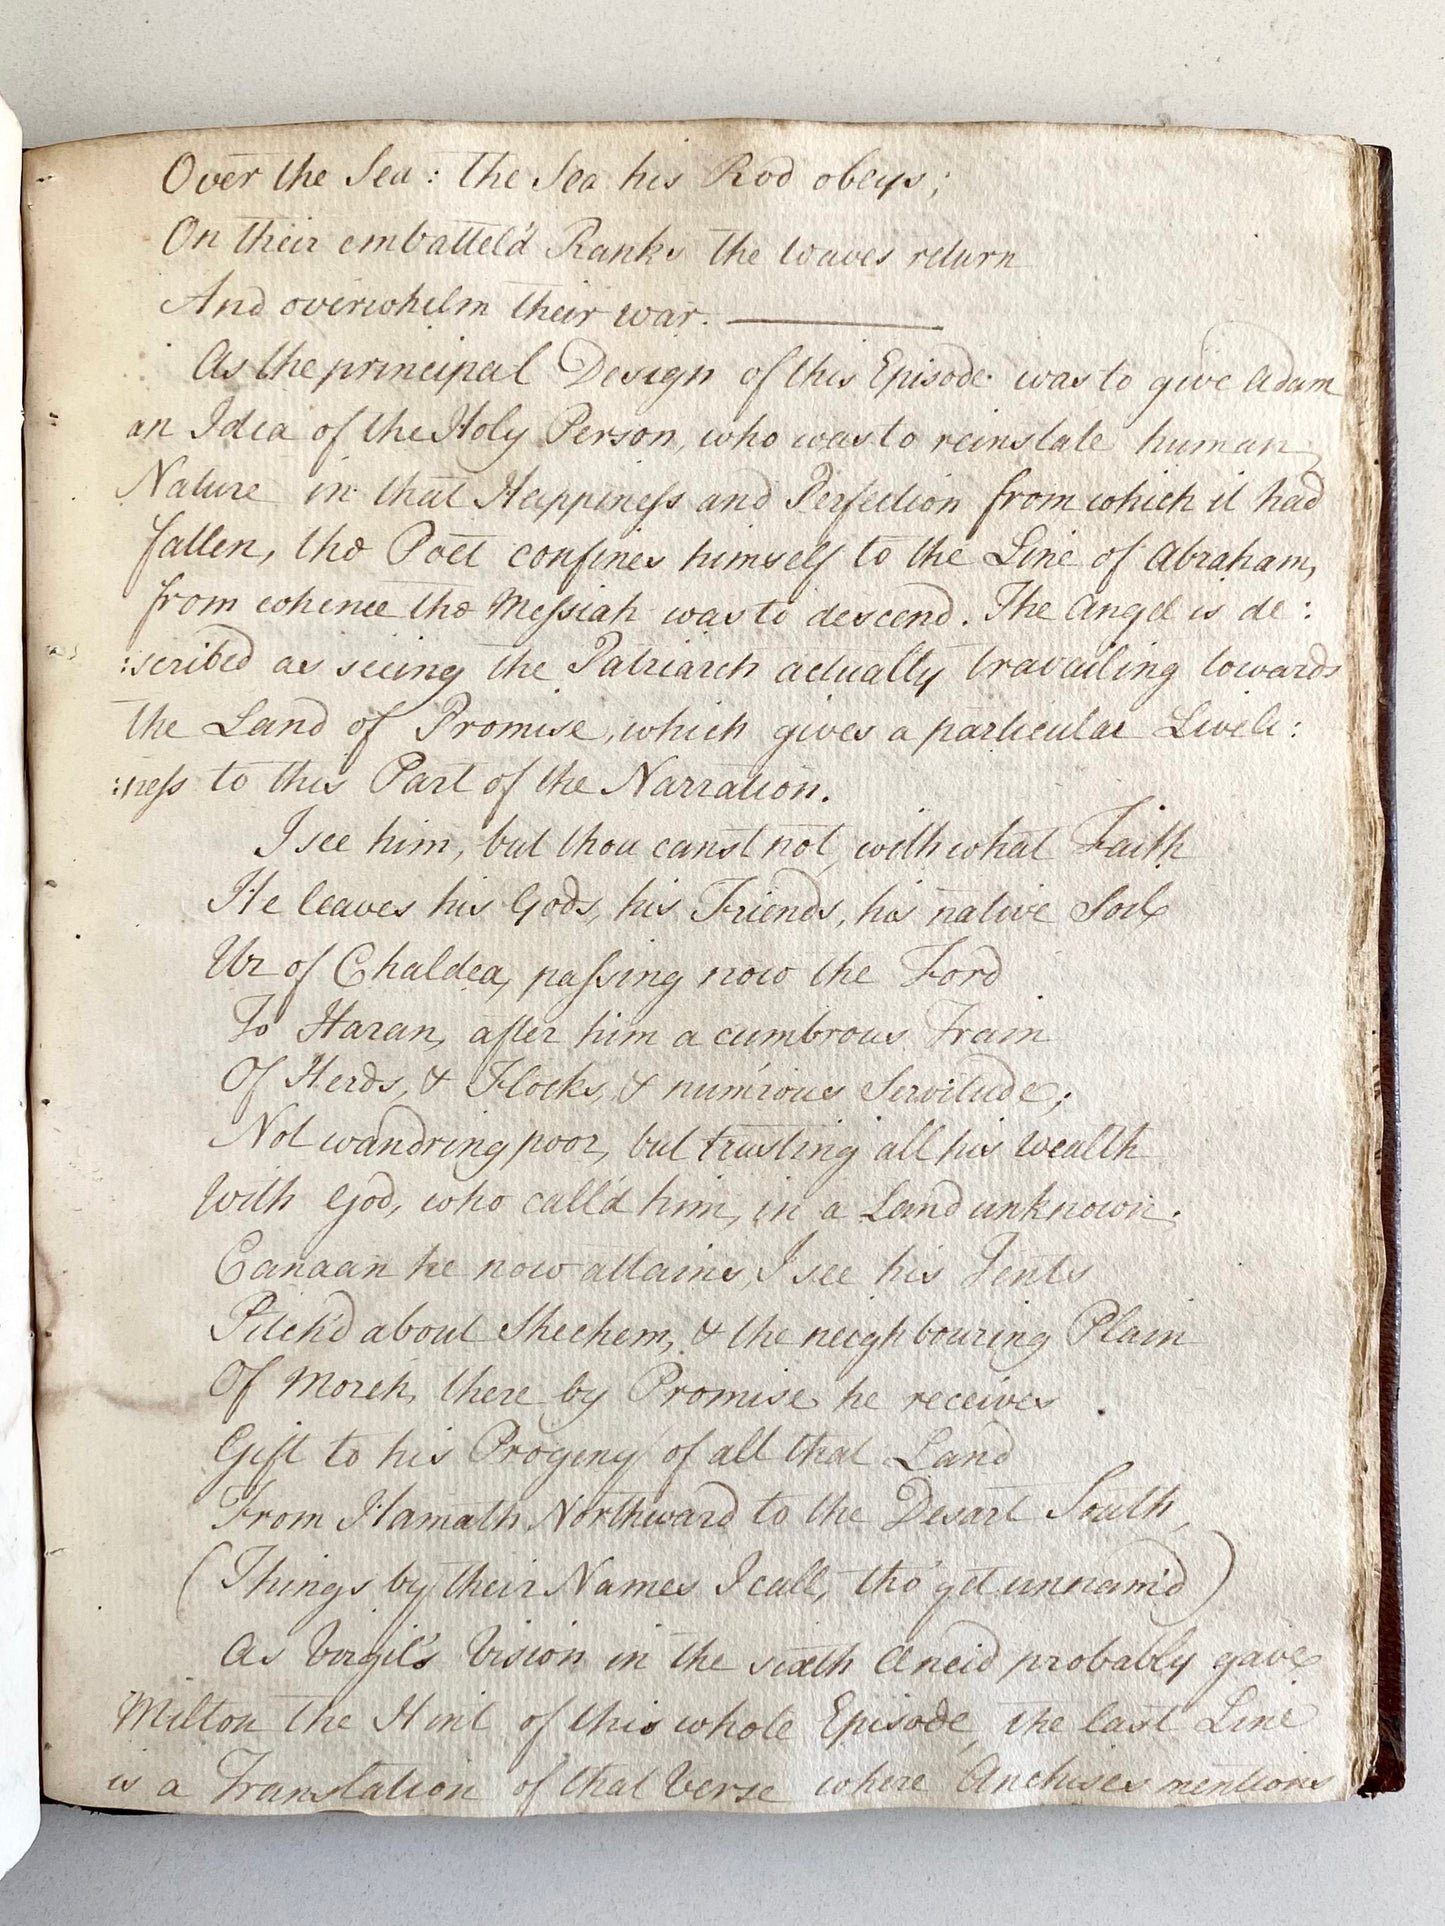 Over the Sea: the Sea his Rod obeys;
On their embattel'd Ranks the waves return
And overwhelm their war. ———
As the principal Design of this Episode was to give Adam
an Idea of the Holy Person, who was to reinstate human
Nature in that Happiness and Perfection from which it had
fallen, the Poet confines himself to the Line of Abraham,
from whence the Messiah was to descend. The Angel is de:
:scribed as seeing the Patriarch actually travailing towards
the Land of Promise, which gives a particular Liveli:
:ness to this Part of the Narration.
I see him, but thou canst not, with what Faith
He leaves his Gods, his Friends, his native Soil
Ur of Chaldea, passing now the Ford
To Haran, after him a cumbrous Train
Of Herds, & Flocks, & num'rous Servitude;
Not wandring poor, but trusting all his wealth
With God, who call'd him, in a Land unknown.
Canaan he now attains, I see his Tents
Pitch'd about Shechem, & the neighbouring Plain
Of Moreh, there by Promise he receives
Gift to his Progeny of all that Land
From Hamath Northward to the Desart South,
(Things by their Names I call, tho' yet unnam'd)
As Virgil's Vision in the sixth Aneid probably gave
Milton the Hint of this whole Episode, the last Line
is a Translation of that Verse where Anchises mentions